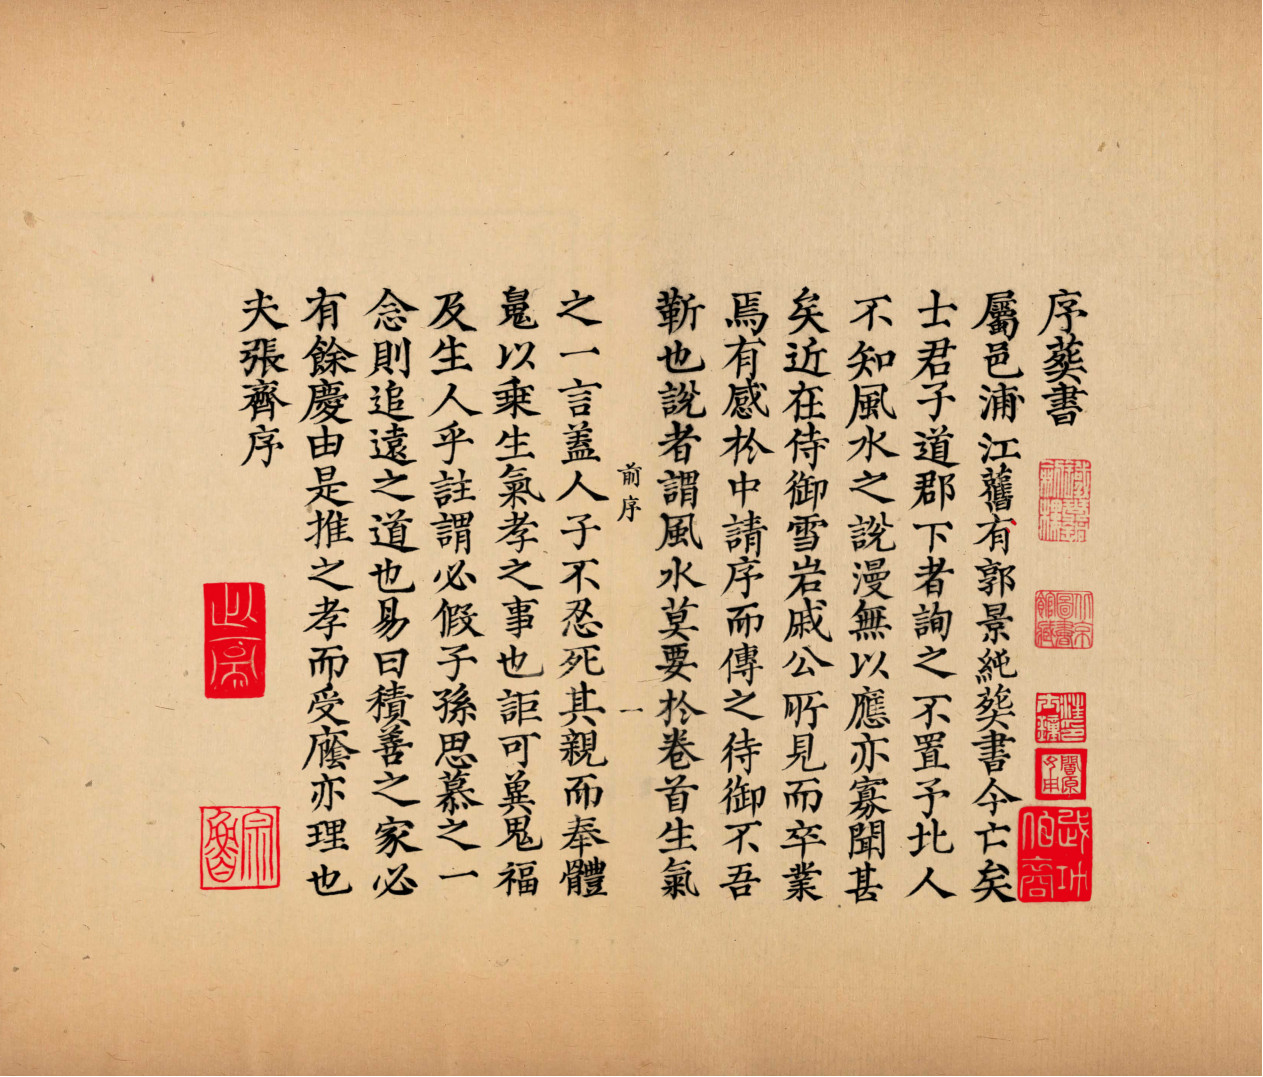 序葬書
屬邑浦江舊有郭景純葬書今亡矣
士君子道郡下者詢之不置予北人
不知風水之說漫無以應亦寡聞甚
矣近在侍御雪岩戚公所見而卒業
焉有感於中請序而傳之待御不吾
靳也說者謂風水莫要於卷首生氣
前序
一
之一言蓋人子不忍死其親而奉體
䰟以乘生氣孝之事也詎可兾鬼福
及生人乎註謂必假子孫思慕之一
念則追遠之道也易曰積善之家必
有餘慶由是推之孝而受廕亦理也
夫張齊序